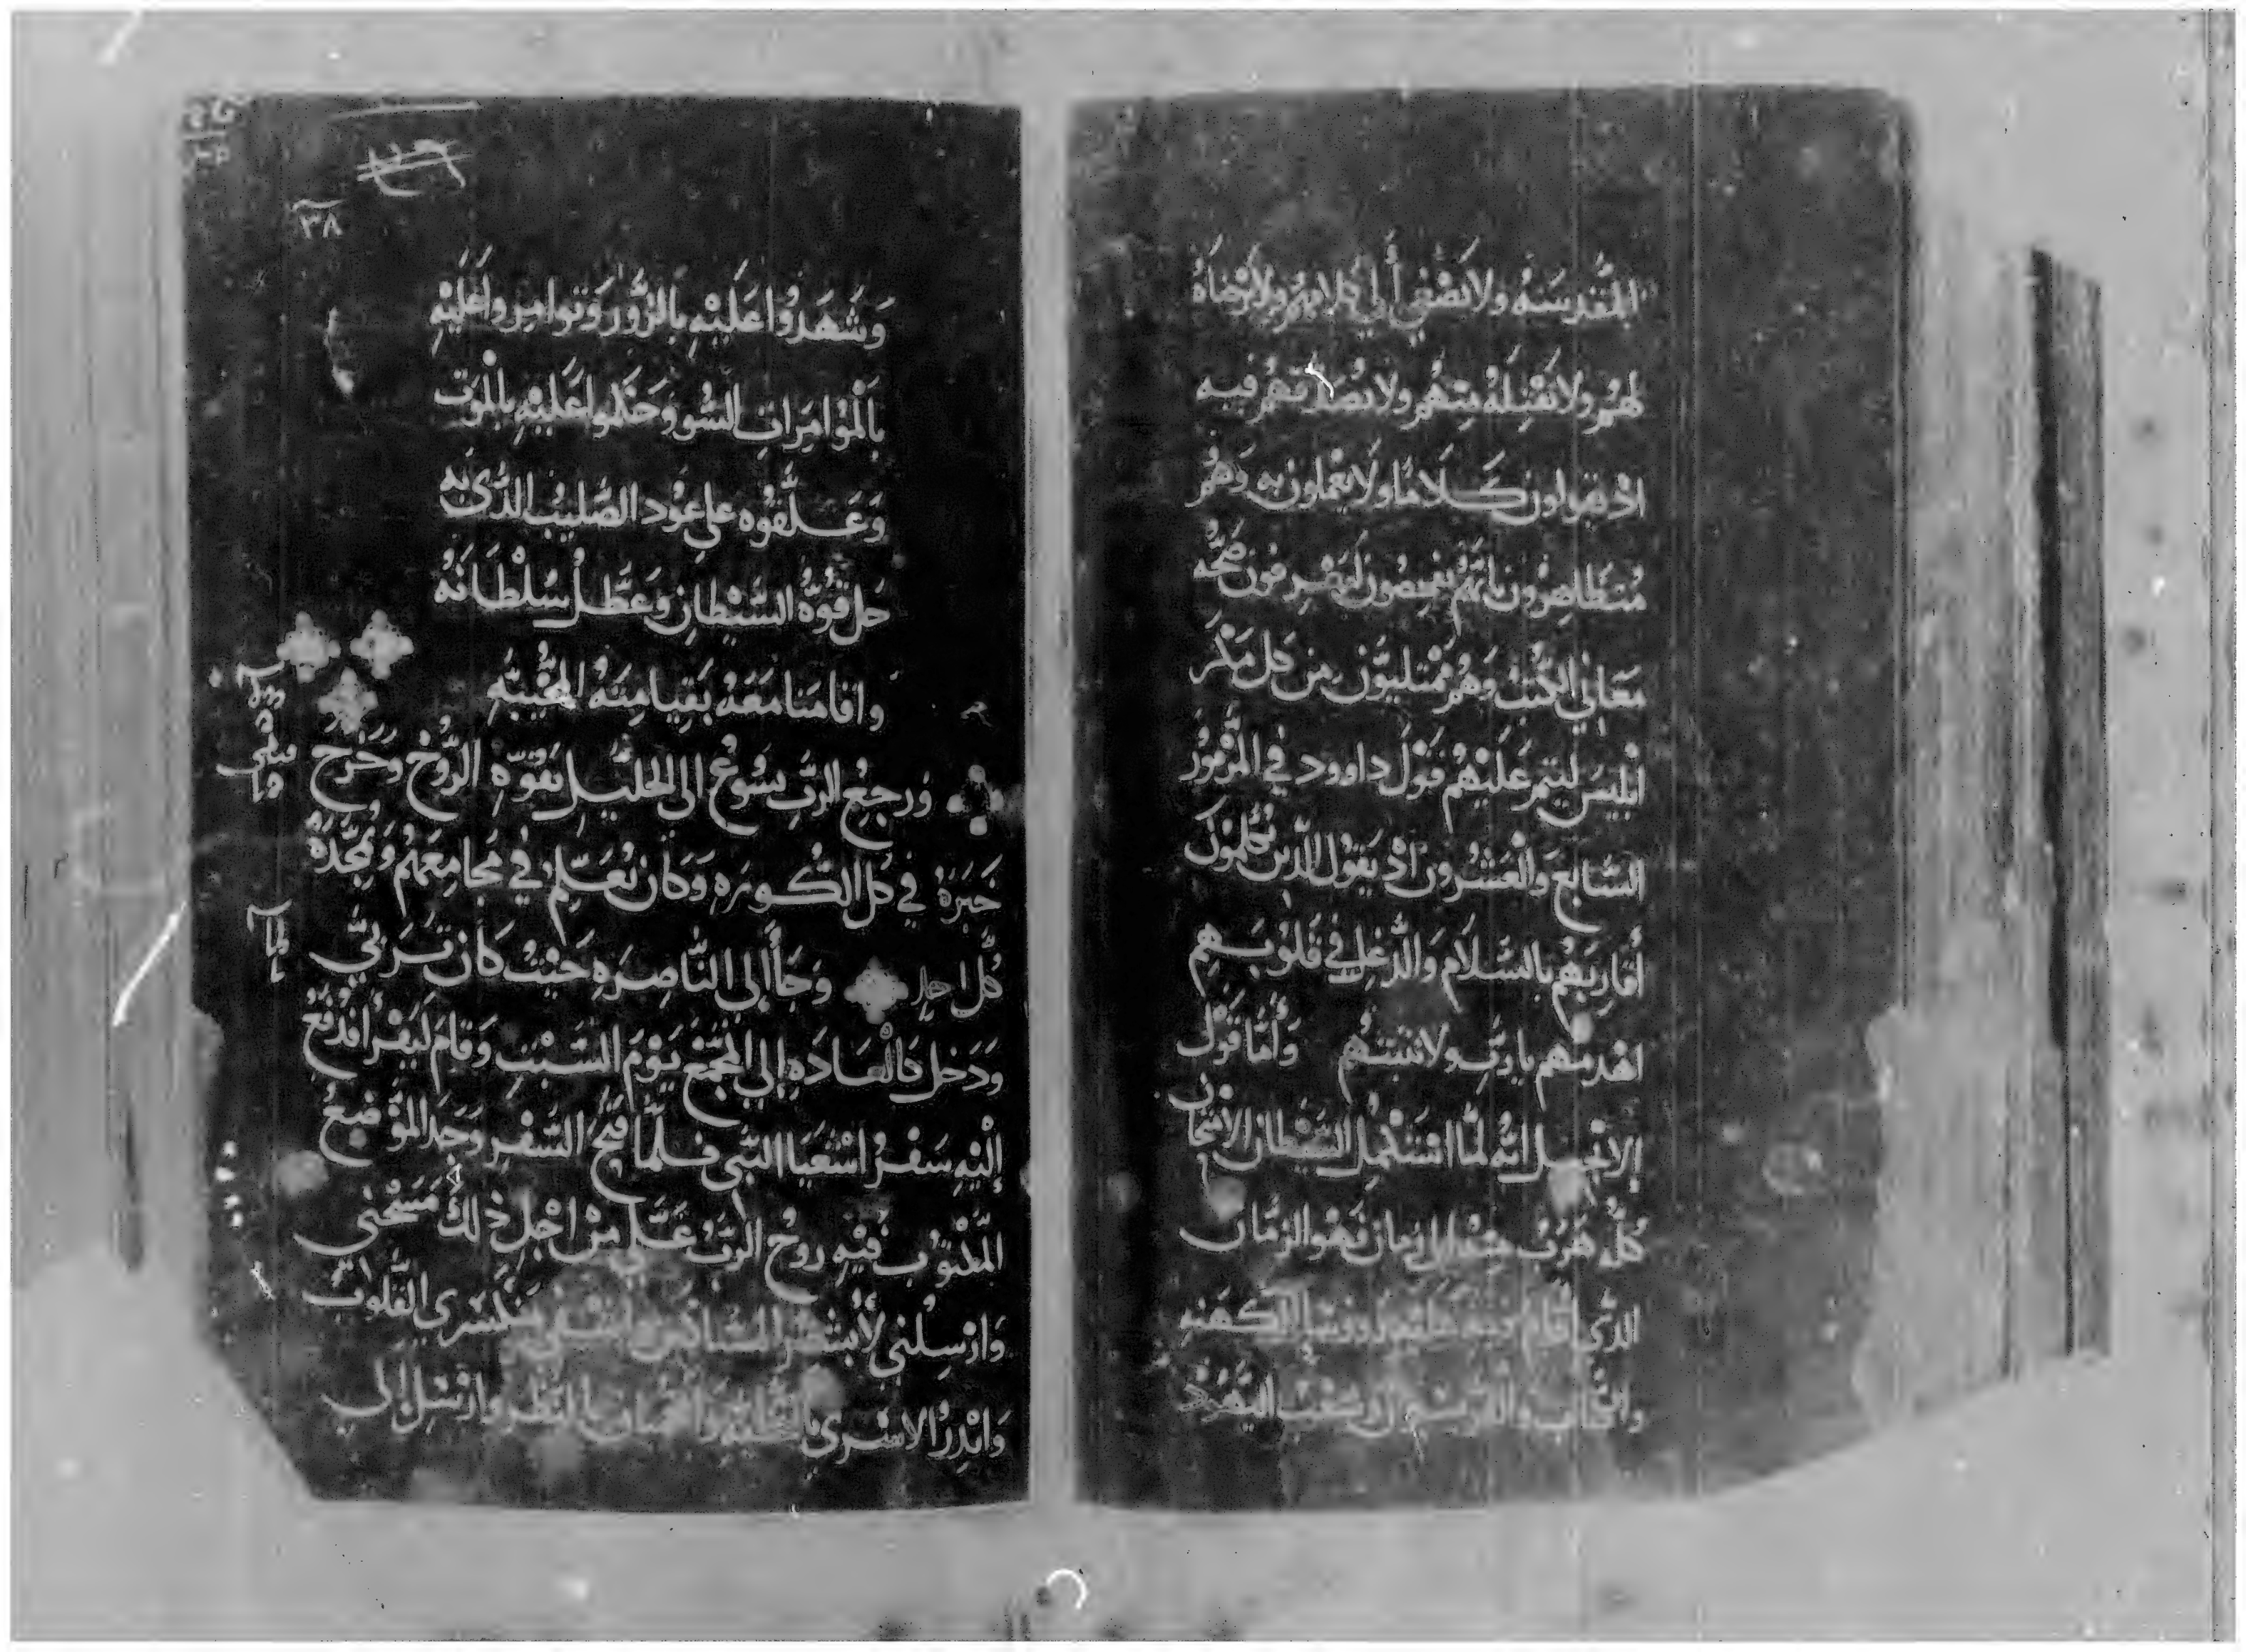 المقدسه ولا نصغي إلى كلامهم ولا نرضاه
لهم ولا نقبله منهم ولا نصدقهم فيه
اذ يقولون كلاما ولا يعملون به وهم
متظاهرون بانهم يفحصون ليعرفون صحه
معاني الكتب وهم ممتليون من كل مكر
ابليس ليتم عليهم قول داوود في المزمور
السابع والعشرون اذ يقول الذين يكلمون
أقاربهم بالسلام والدغل في قلوبهم
اهدمهم يا رب ولا تبنهم وأما قول
الانجيل انه لما استكمل الشيطان الامتحان
كله هرب منه الى زمان فهو الزمان
الذي اقام فيه عليه روسا الكهنه
والكتاب و شعب اليهود
٣٨
وَشَهَدُوا عَلَيْهِ بالزُّور وَتوامروا عَلَيْهِ
بالموامرات السُّوء وحكموا عليه بالموت
وَعَلَّقوُه على عوُد الصَّليب الذي به
حل قوة الشيطان وعطل سلطانه
واقامنا معه بقيامته المحييه
ورجع الرب يسوع الى الجليل بقوه الروح وخرج
خبره في كل الكوره وكان يعلم في مجامعهم ويمجده
كل احد وجا إلى الناصره حيث كان تربي
ودخل كالعاده إلى المجمع يوم السبت وقام ليقرا فدفع
إليه سفر اشعيا النبي فلما فتح السفر وجد الموضع
المكتوب فيه روح الرب علي من اجل ذلك مسحني
وارسلني لأبشر المساكين واشفي منكسري القلوب
وانذر الاسرى بالتخليه والعميان بالنظر وارسل إلى